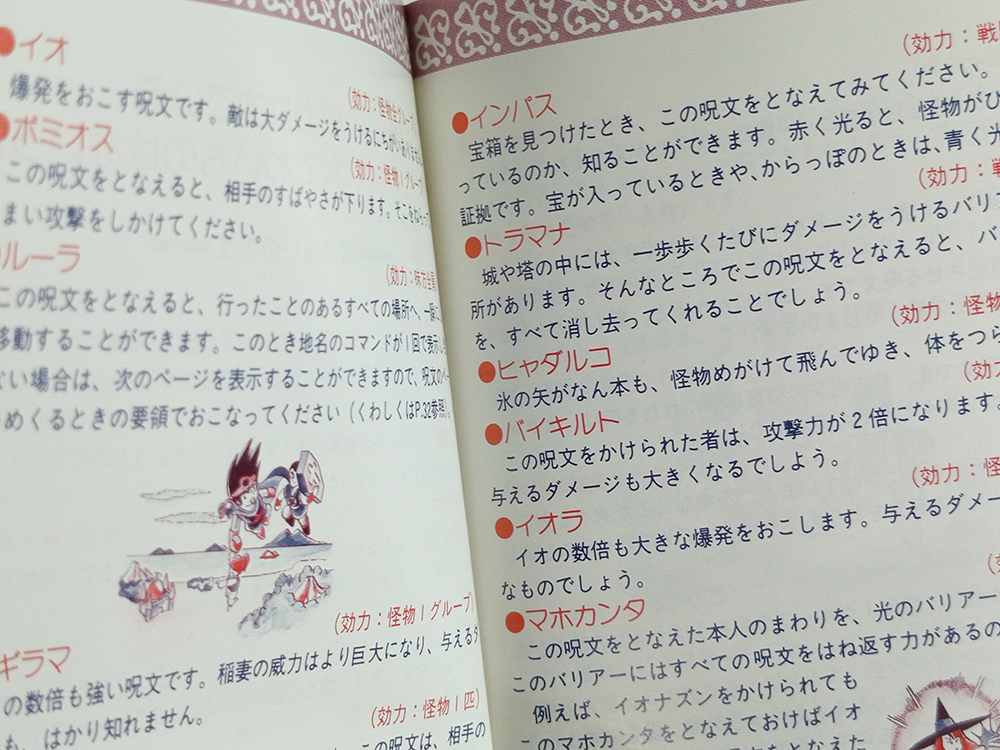 ●イオ
(効力：怪物全グループ
爆発をおこす呪文です。敵は大ダメージをうけるにちがいありま
●ボミオス
(効力：怪物1グループ
この呪文をとなえると、相手のすばやさが下ります。そこをねらって
まい攻撃をしかけてください。
ルーラ
(効力：味方全員
この呪文をとなえると、行ったことのあるすべての場所へ、一瞬に
移動することができます。このとき地名のコマンドが1回で表示し
ない場合は、次のページを表示することができますので、呪文のペー
めくるときの要領でおこなってください（くわしくはP.32参照）。
(効力：怪物1グループ)
ギラマ
の数倍も強い呪文です。稲妻の威力はより巨大になり、与えるダ
も、はかり知れません。
(効力：怪物1匹)
この呪文は、相手の
(効力：戦
●インパス
宝箱を見つけたとき、この呪文をとなえてみてください。
っているのか、知ることができます。赤く光ると、怪物がひ
証拠です。宝が入っているときや、からっぽのときは、青く光
(効力：戦
●トラマナ
城や塔の中には、一歩歩くたびにダメージをうけるバリア
所があります。そんなところでこの呪文をとなえると、バ
を、すべて消し去ってくれることでしょう。
(効力：怪物
●ヒャダルコ
氷の矢がなん本も、怪物めがけて飛んでゆき、体をつら
(効力
●バイキルト
この呪文をかけられた者は、攻撃力が2倍になります。
与えるダメージも大きくなるでしょう。
(効力：怪
●イオラ
イオの数倍も大きな爆発をおこします。与えるダメー
なものでしょう。
●マホカンタ
この呪文をとなえた本人のまわりを、光のバリアー
このバリアーにはすべての呪文をはね返す力があるの
例えば、イオナズンをかけられても
このマホカンタをとなえておけばイオ
をとなえた